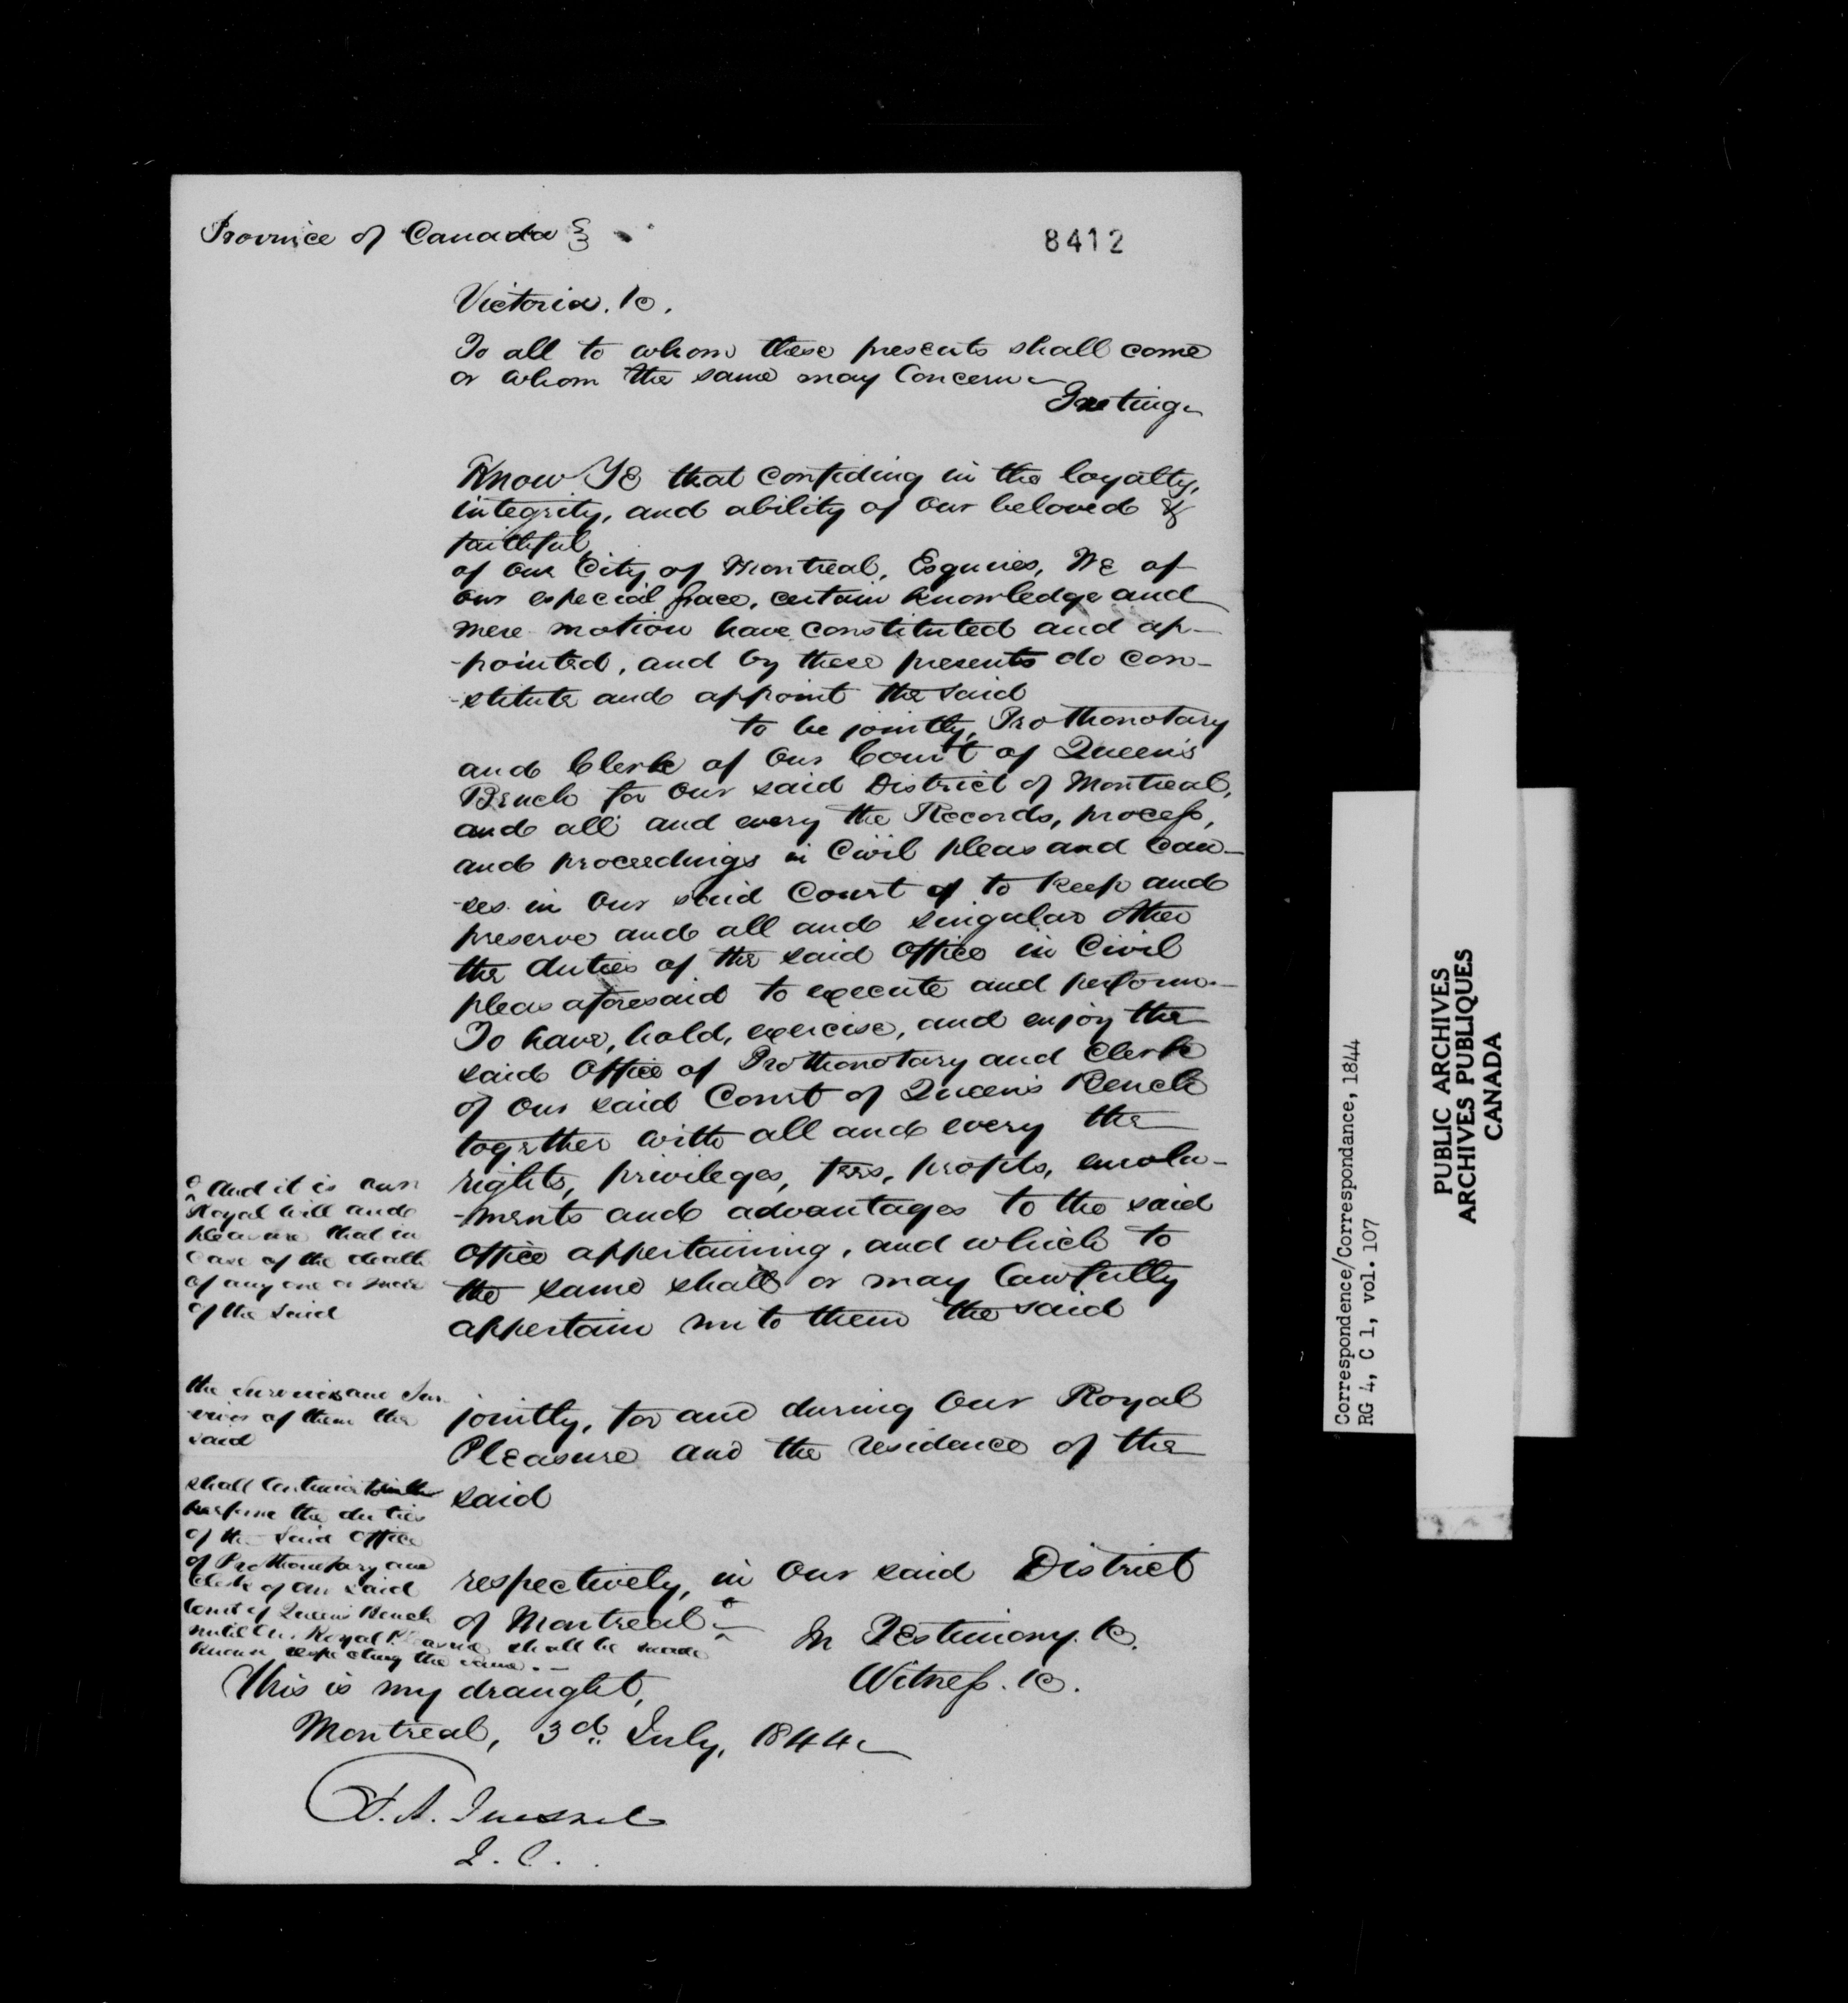 Province of Canada
8412
Victoria. &c.
To all to whom these presents shall come
or whom the same may Concern
Greeting
Know Ye that confiding in the loyalty,
integrity, and ability of our beloved &
faithful
of our City of Montreal, Esquires, We of
our especial grace, certain knowledge and
mere motion have constituted and ap-
-pointed, and by these presents do con-
-stitute and appoint the said
to be jointly, Prothonotary
and Clerk of Our Court of Queen's
Bench for Our said District of Montreal,
and all and every the Records, process,
and proceedings in Civil pleas and Cau-
-ses in Our said Court of to keep and
preserve and all and singular other
the duties of the said Office in Civil
pleas aforesaid to execute and perform.
To have, hold, exercise, and enjoy the
said Office of Prothonotary and Clerk
of Our said Court of Queen's Bench
together with all and every the
rights, privileges, fees, profits, emolu-
-ments and advantages to the said
Office appertaining, and which to
the same shall or may lawfully
appertain unto them the said
jointly, for and during Our Royal
Pleasure and the residence of the
said
respectively, in Our said District
of Montreal
In Testimony. &c.
Witness. &c.
and it is our
Royal will and
pleasure that in
Case of the death
of any one or more
of the said
the survivors and Sur-
-vivor of them the
said
shall Continue to
perform the duties
of the said Office
of Prothonotary and
Clerk of our said
Court of Queen's Bench
until Our Royal Pleasure shall be made
known respecting the same.
This is my draught,
Montreal, 3d July, 1844
Correspondence/Correspondance, 1844
RG 4, C 1, vol. 107
PUBLIC ARCHIVES
ARCHIVES PUBLIQUES
CANADA